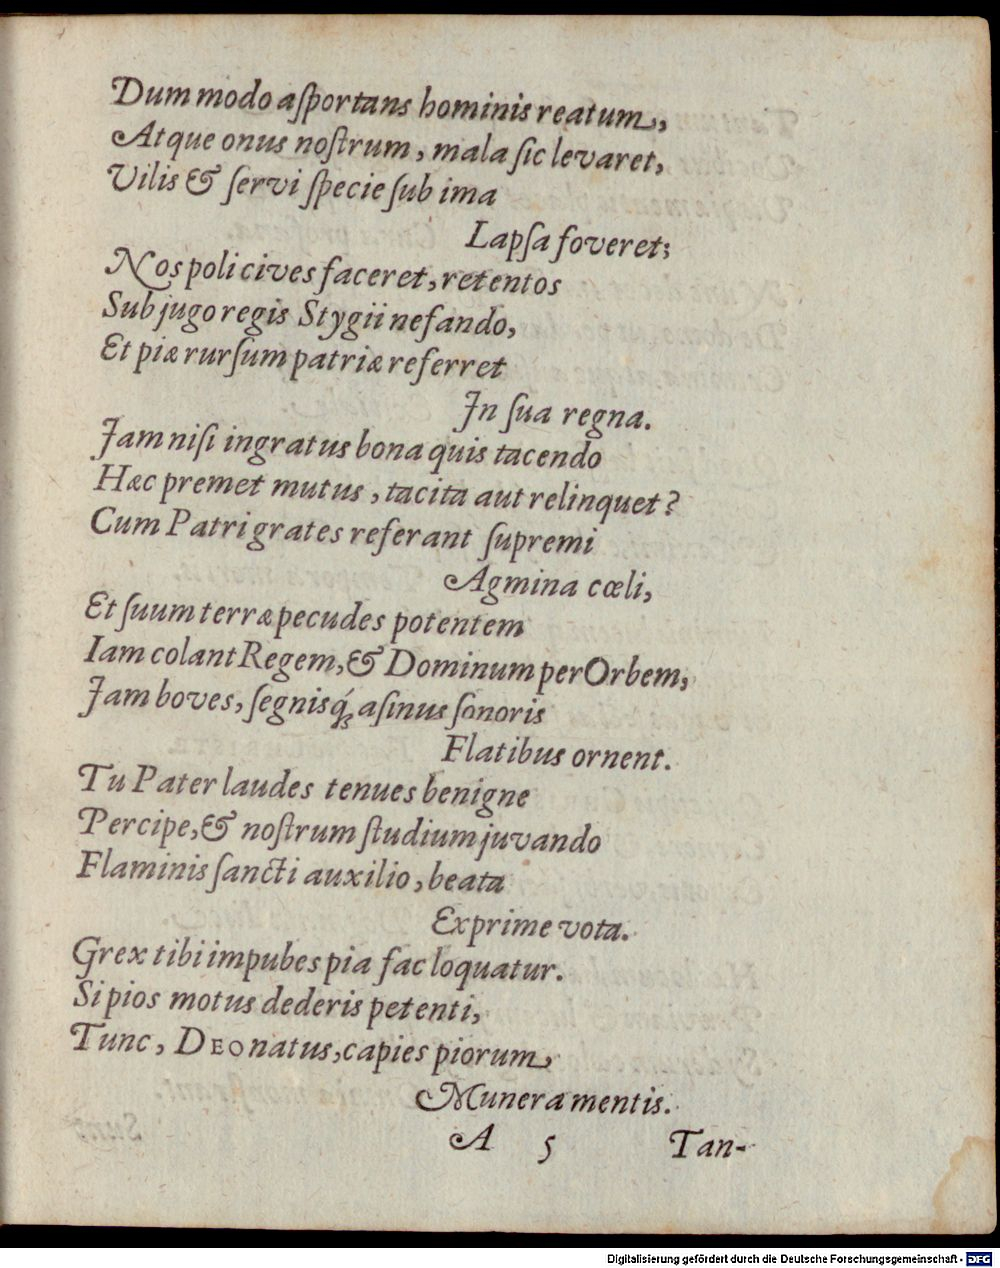 Dum modo aſportans hominis reatum,
Atque onus noſtrum, mala ſic levaret,
Vilis & ſervi ſpecie ſub ima
Lapſa foveret;
Nos poli cives faceret, retentos
Sub jugo regis Stygii nefando,
Et piæ rurſum patriæ referret
In ſua regna.
Jam niſi ingratus bona quis tacendo
Hæc premet mutus, tacita aut relinquet?
Cum Patri grates referant ſupremi
Agmina cœli,
Et ſuum terræ pecudes potentem
Iam colant Regem, & Dominum per Orbem,
Jam boves, ſegnisq́; aſinus ſonoris
Flatibus ornent.
Tu Pater laudes tenues benigne
Percipe, & noſtrum ſtudium juvando
Flaminis ſancti auxilio, beata
Exprime vota.
Grex tibi impubes pia fac loquatur.
Si pios motus dederis petenti,
Tunc, DEO natus, capies piorum
Munera mentis.
A 5 Tan-
Digitalisierung gefördert durch die Deutsche Forschungsgemeinschaft - DFG